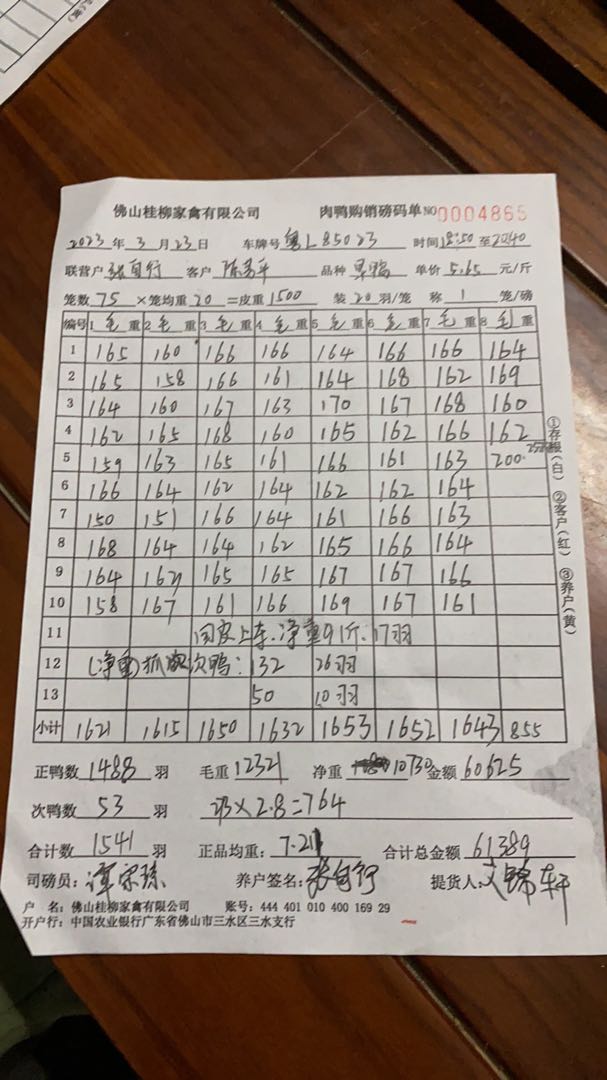 佛山桂柳家禽有限公司 肉鸭购销磅码单 NO 0004865
2023 年 3 月 23 日 车牌号 粤L85023 时间 18:50 至 20:40
联营户 张自行 客户 品种 单价 5.65 元/斤
笼数 75 ×笼均重 20 =皮重 1500 装 20 羽/笼 称 1 笼/磅
编号 1 毛 重 2 毛 重 3 毛 重 4 毛 重 5 毛 重 6 毛 重 7 毛 重 8 毛 重
1 165 160 166 166 164 166 166 164
2 165 158 166 161 164 168 162 169
3 164 160 167 163 170 167 168 160
4 162 165 168 160 165 162 166 162
5 159 163 165 161 166 161 163 200
6 166 164 162 164 162 162 164
7 150 151 166 164 161 166 163
8 168 164 164 162 165 166 164
9 164 162 165 165 167 167 166
10 158 167 161 166 169 167 161
11 上车.净重91斤.17羽
12 (净重)抓 次鸭: 132 26羽
13 50 10羽
小计 1621 1615 1650 1632 1653 1652 1643 855
正鸭数 1488 羽 毛重 12321 净重 10730 金额 60625
次鸭数 53 羽 ×2.8=764
合计数 1541 羽 正品均重: 7.21 合计总金额 61389
司磅员: 养户签名: 张自行 提货人: 文锦轩
户 名: 佛山桂柳家禽有限公司 账号: 444 401 010 400 169 29
开户行: 中国农业银行广东省佛山市三水区三水支行
①存根(白) ②客户(红) ③养户(黄)